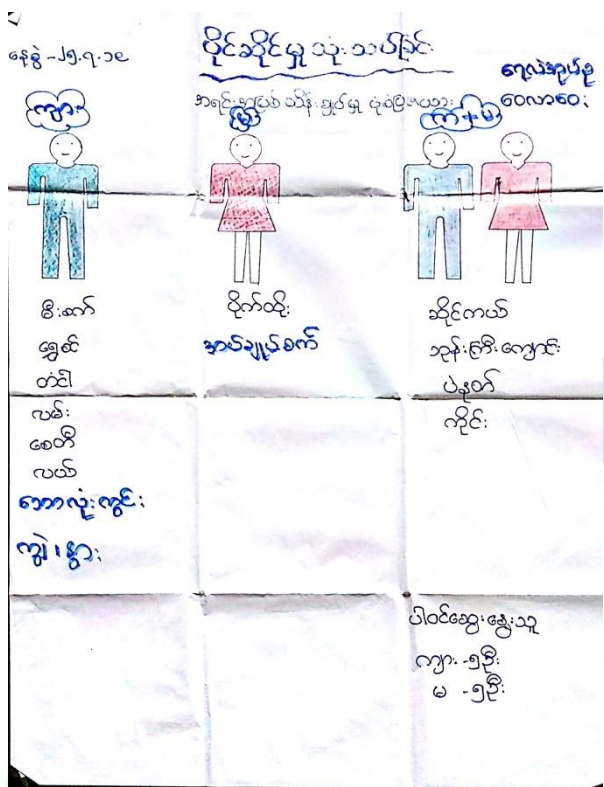 နေ့စွဲ - ၂၅.၇.၁၉
ပိုင်ဆိုင်မှု သုံးသပ်ခြင်း
အရင်းအမြစ် ထိန်းချုပ်မှု ပုံစံပြဇယား
ဝေလာဝေး
ကျား
မ
ကျား+မ
မီးစက်
ရွှေဆင်
တံငါ
လမ်း
စေတီ
လယ်
ဘောလုံးကွင်း
ကျွဲ၊ နွား
ဝိုက်ထိုး
အပ်ချုပ်စက်
ဆိုင်ကယ်
ဘုန်းကြီးကျောင်း
ပဲနုတ်
ကိုင်း
ပါဝင်ဆွေးနွေးသူ
ကျား - ၅ဦး
မ - ၅ဦး